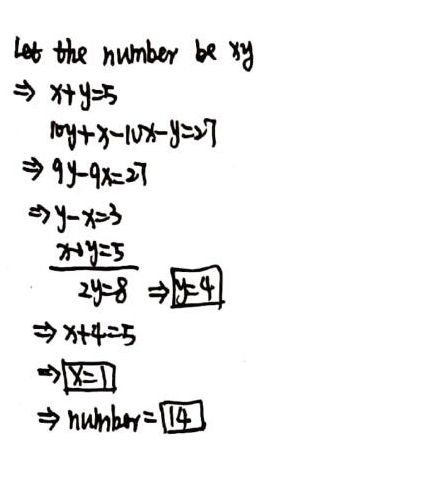 Let the number be xy
⇒ x+y=5
10y+x-10x-y=27
⇒ 9y-9x=27
⇒ y-x=3
x+y=5
2y=8 ⇒ y=4
⇒ x+4=5
⇒ x=1
⇒ number = 14